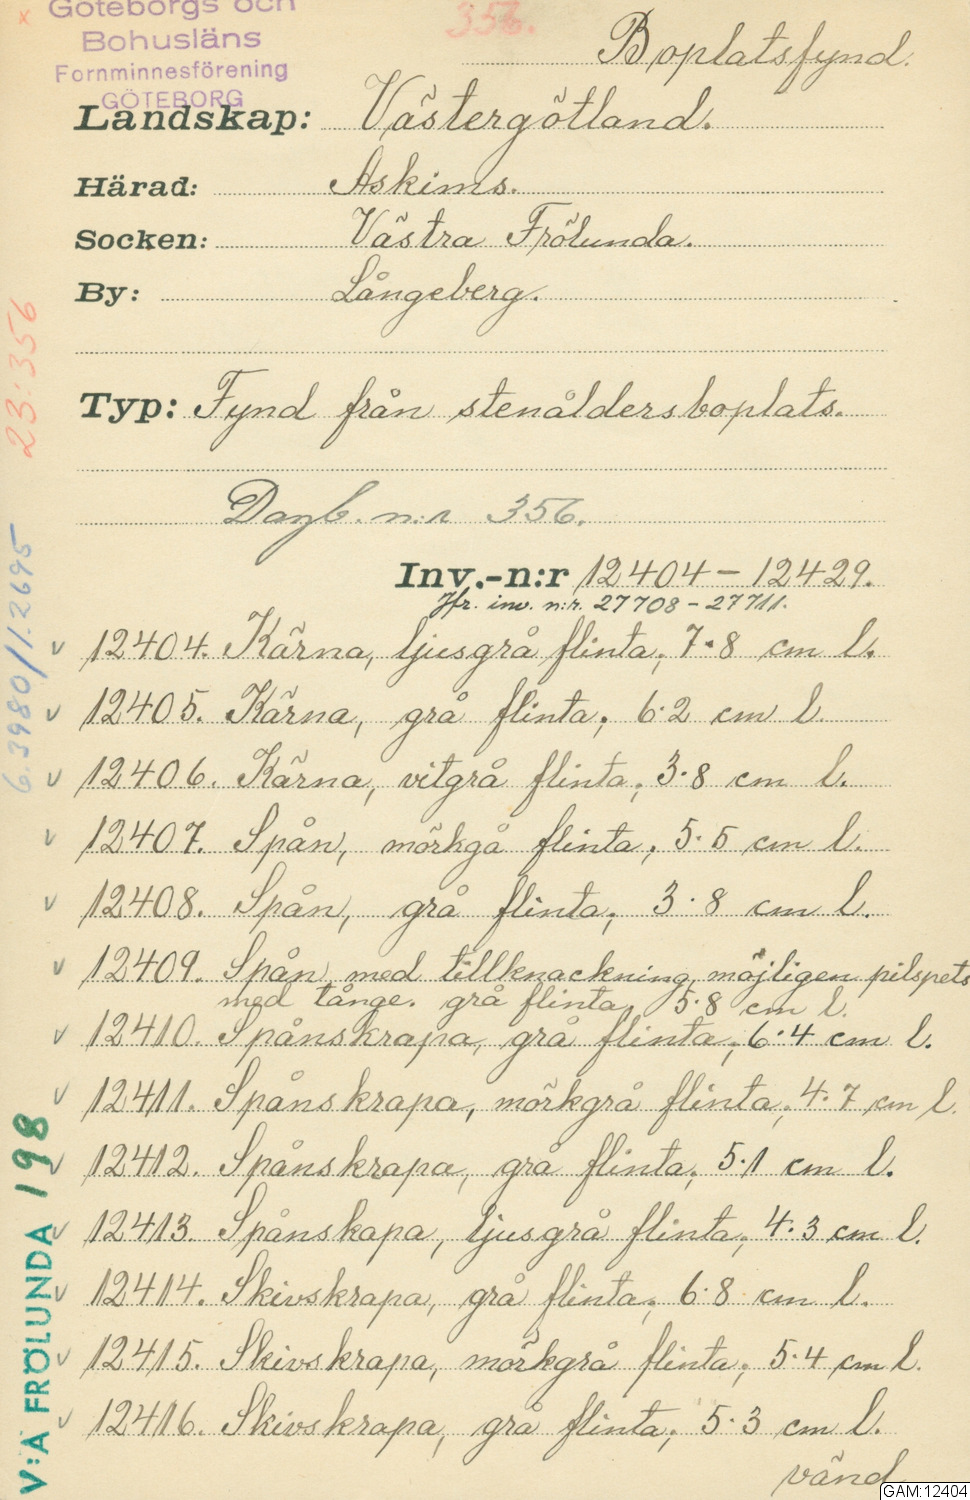 x Göteborgs och
Bohusläns
Fornminnesförening
GÖTEBORG
356.
Boplatsfynd.
Landskap: Västergötland.
Härad: Askims.
Socken: Västra Frölunda.
By: Långeberg.
Typ: Fynd från stenåldersboplats.
Dagb. n:r 356.
Inv.-n:r 12404 – 12429.
Jfr. inv. n:r. 27708 – 27711.
v 12404. Kärna, ljusgrå flinta; 7·8 cm l.
v 12405. Kärna, grå flinta; 6·2 cm l.
v 12406. Kärna, vitgrå flinta; 3·8 cm l.
v 12407. Spån, mörkgå flinta; 5·5 cm l.
v 12408. Spån, grå flinta; 3·8 cm l.
v 12409. Spån med tillknackning, möjligen pilspets
med tånge. grå flinta, 5·8 cm l.
v 12410. Spånskrapa, grå flinta; 6·4 cm l.
v 12411. Spånskrapa, mörkgrå flinta; 4·7 cm l.
v 12412. Spånskrapa, grå flinta; 5·1 cm l.
v 12413. Spånskapa, ljusgrå flinta; 4·3 cm l.
v 12414. Skivskrapa, grå flinta; 6·8 cm l.
v 12415. Skivskrapa, mörkgrå flinta; 5·4 cm l.
v 12416. Skivskrapa, grå flinta; 5·3 cm l.
vänd
23:356
6.3980/1.2695
V:A FRÖLUNDA 198
GAM:12404